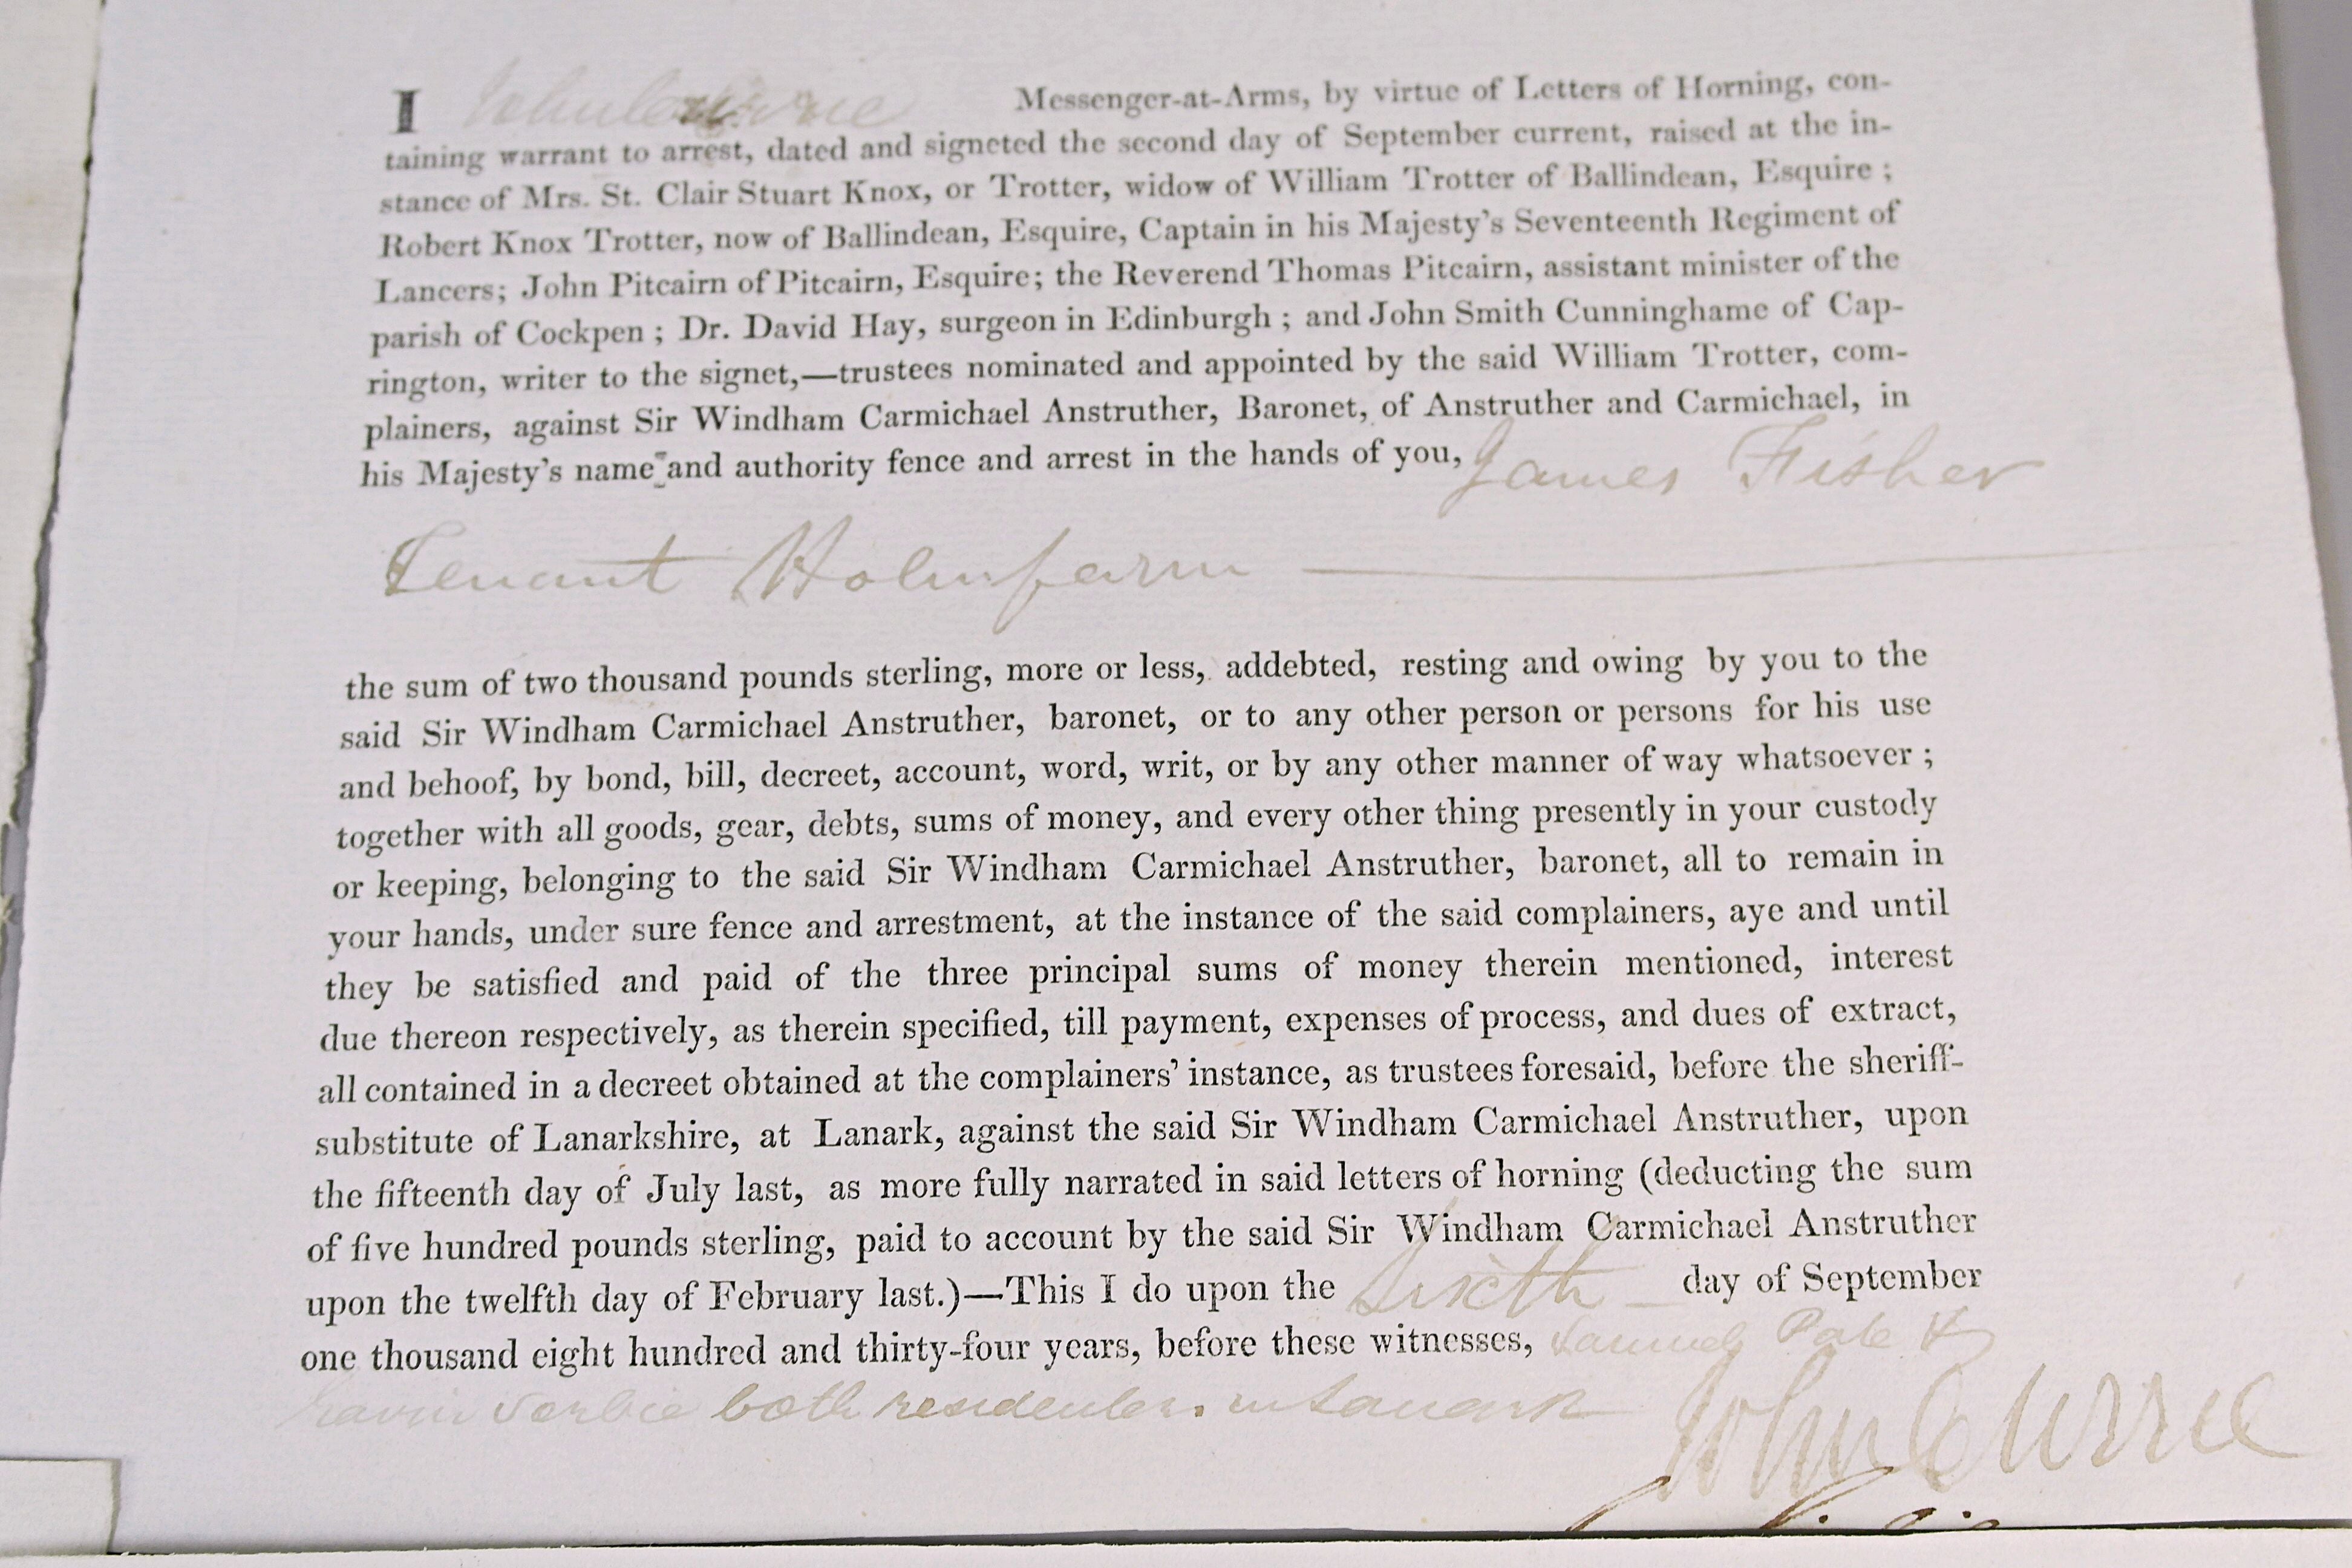 I John Currie Messenger-at-Arms, by virtue of Letters of Horning, con-
taining warrant to arrest, dated and signeted the second day of September current, raised at the in-
stance of Mrs. St. Clair Stuart Knox, or Trotter, widow of William Trotter of Ballindean, Esquire ;
Robert Knox Trotter, now of Ballindean, Esquire, Captain in his Majesty's Seventeenth Regiment of
Lancers; John Pitcairn of Pitcairn, Esquire; the Reverend Thomas Pitcairn, assistant minister of the
parish of Cockpen ; Dr. David Hay, surgeon in Edinburgh ; and John Smith Cunninghame of Cap-
rington, writer to the signet,—trustees nominated and appointed by the said William Trotter, com-
plainers, against Sir Windham Carmichael Anstruther, Baronet, of Anstruther and Carmichael, in
his Majesty's name and authority fence and arrest in the hands of you, James Fisher
Tenant Holmfarm
the sum of two thousand pounds sterling, more or less, addebted, resting and owing by you to the
said Sir Windham Carmichael Anstruther, baronet, or to any other person or persons for his use
and behoof, by bond, bill, decreet, account, word, writ, or by any other manner of way whatsoever ;
together with all goods, gear, debts, sums of money, and every other thing presently in your custody
or keeping, belonging to the said Sir Windham Carmichael Anstruther, baronet, all to remain in
your hands, under sure fence and arrestment, at the instance of the said complainers, aye and until
they be satisfied and paid of the three principal sums of money therein mentioned, interest
due thereon respectively, as therein specified, till payment, expenses of process, and dues of extract,
all contained in a decreet obtained at the complainers' instance, as trustees foresaid, before the sheriff-
substitute of Lanarkshire, at Lanark, against the said Sir Windham Carmichael Anstruther, upon
the fifteenth day of July last, as more fully narrated in said letters of horning (deducting the sum
of five hundred pounds sterling, paid to account by the said Sir Windham Carmichael Anstruther
upon the twelfth day of February last.)—This I do upon the Sixth day of September
one thousand eight hundred and thirty-four years, before these witnesses, Samuel &
both residenters in Lanark
John Currie